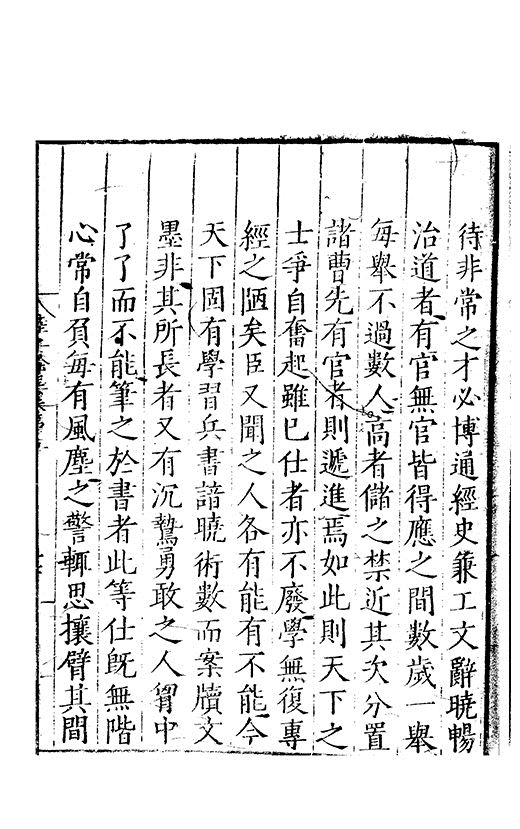 待非常之才必博通經史兼工文辭曉暢
治道者有官無官皆得應之間數歲一舉
每舉不過數人高者儲之禁近其次分置
諸曹先有官者則遞進焉如此則天下之
士爭自奮起雖已仕者亦不廢學無復專
經之陋矣臣又聞之人各有能有不能今
天下固有學習兵書諳曉術數而案牘文
墨非其所長者又有沉鷙勇敢之人胷中
了了而不能筆之於書者此等仕旣無階
心常自負每有風塵之警輒思攘臂其間